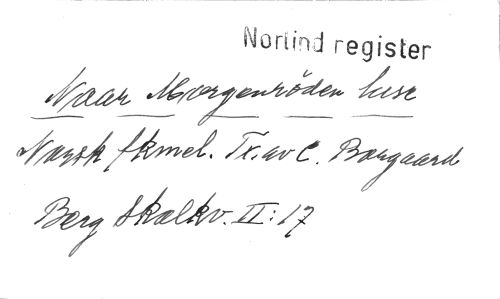 Norlind register
Naar Morgenröden luse
Norsk fkmel. Tx. av C. Borgaard
Berg Skolkv. II:17